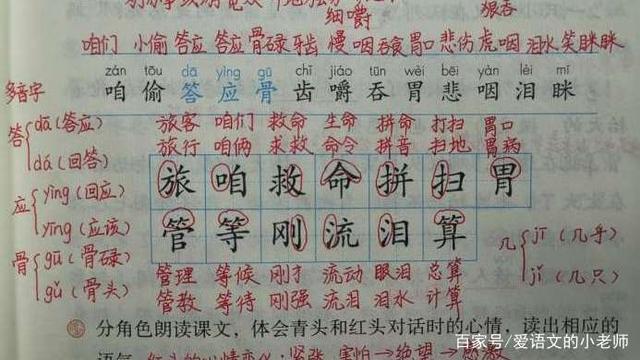 细嚼
狼吞
咱们 小偷 答应 答应 骨碌 牙齿 慢咽 吞食 胃口 悲伤 虎咽 泪水 笑眯眯
zán tōu dā yìng gū chǐ jiáo tūn wèi bēi yàn lèi mī
咱 偷 答 应 骨 齿 嚼 吞 胃 悲 咽 泪 眯
多音字
答 dā (答应) dá (回答)
旅客 咱们 救命 生命 拼命 打扫 胃口
旅行 咱俩 求救 命令 拼音 扫地 胃病
旅 咱 救 命 拼 扫 胃
应 yìng (回应) yīng (应该)
管 等 刚 流 泪 算
几 jī (几乎) jǐ (几只)
骨 gū (骨碌) gǔ (骨头)
管理 等候 刚才 流动 眼泪 总算
管教 等待 刚强 流泪 泪水 计算
分角色朗读课文，体会青头和红头对话时的心情，读出相应的
语气。
百家号/爱语文的小老师